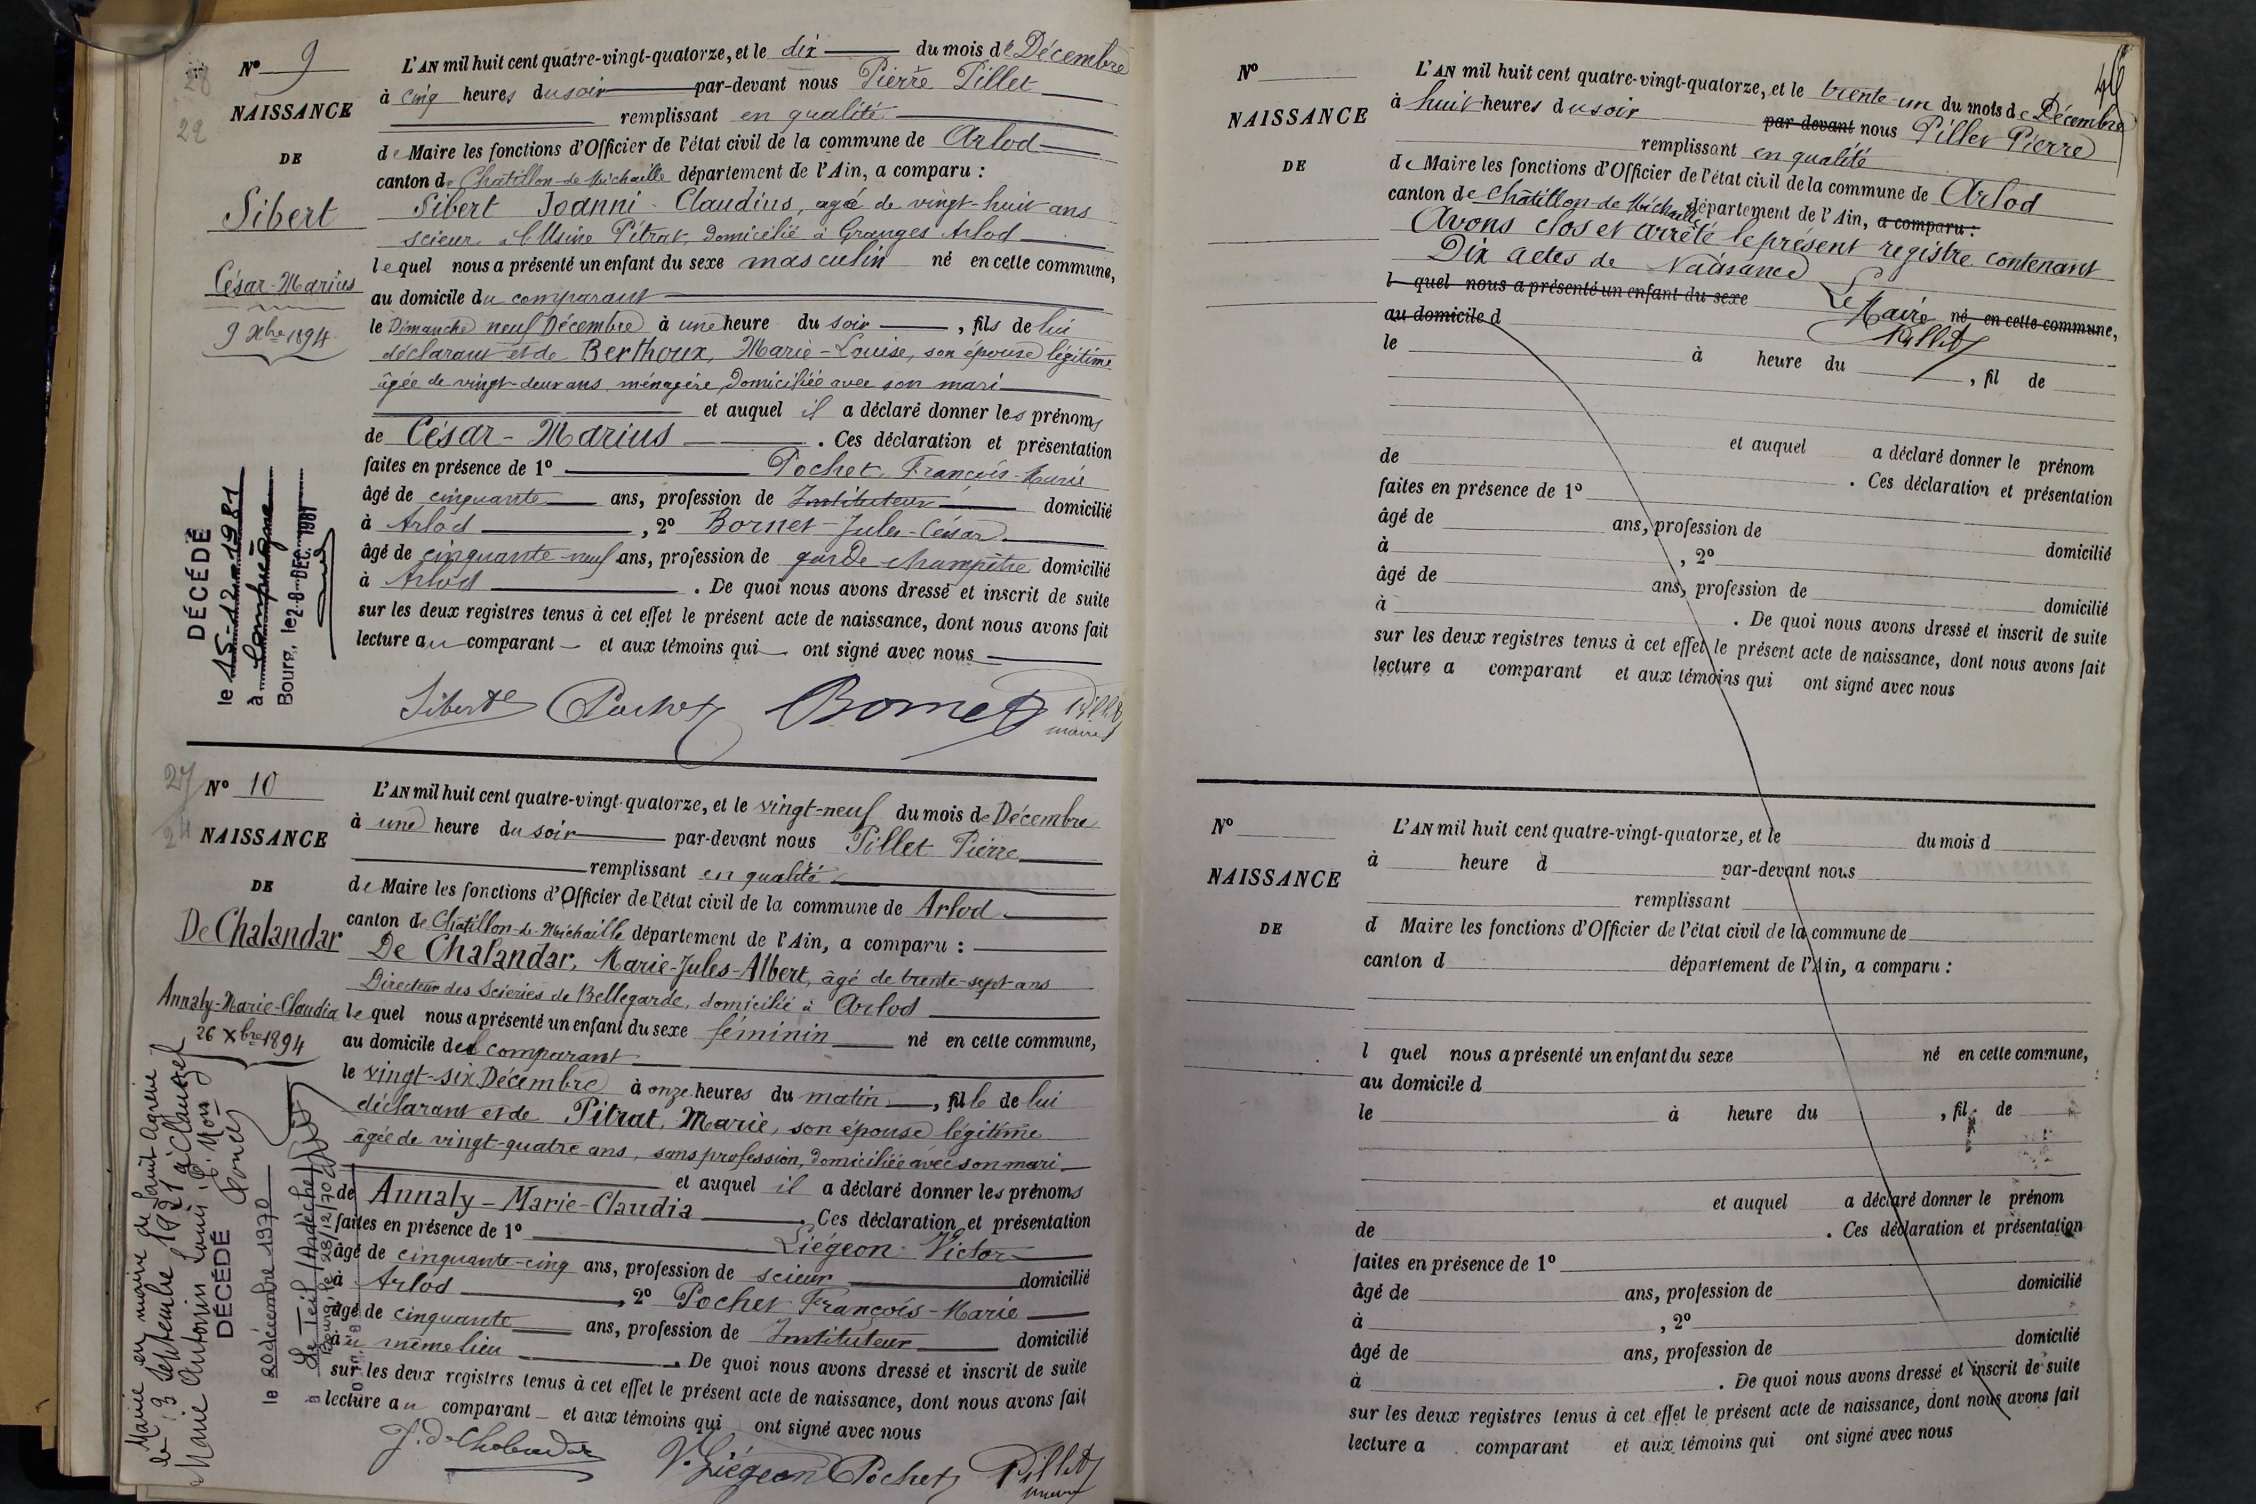 N° 9
NAISSANCE
DE
Sibert
César-Marius
9 Xbre 1894
L'AN mil huit cent quatre-vingt-quatorze, et le dix du mois de Décembre
à cinq heures du soir par-devant nous Pierre Pillet
remplissant en qualité
de Maire les fonctions d'Officier de l'état civil de la commune de Arlod
canton de Châtillon-de-Michaille département de l'Ain, a comparu :
Sibert Joanni-Claudius, agé de vingt-huit ans
scieur à l'Usine Pitrat, domicilié à Granges Arlod
lequel nous a présenté un enfant du sexe masculin né en cette commune,
au domicile du comparant
le Dimanche neuf Décembre à une heure du soir , fils de lui
déclarant et de Berthoux, Marie-Louise, son épouse légitime
âgée de vingt-deux ans ménagère, domiciliée avec son mari
et auquel il a déclaré donner les prénoms
de César-Marius . Ces déclaration et présentation
faites en présence de 1° Pochet, François-Marie
âgé de cinquante ans, profession de Instituteur domicilié
à Arlod , 2° Bornet-Jules-César
âgé de cinquante-neuf ans, profession de garde-champêtre domicilié
à Arlod . De quoi nous avons dressé et inscrit de suite
sur les deux registres tenus à cet effet le présent acte de naissance, dont nous avons fait
lecture au comparant et aux témoins qui ont signé avec nous
Sibert Pochet Bornet Pillet
maire
DÉCÉDÉ
le 15-12-1981
à Compiègne
Bourg, le 28 DEC. 1981
27
N° 10
NAISSANCE
DE
De Chalandar
Annaly-Marie-Claudia
26 Xbre 1894
L'AN mil huit cent quatre-vingt-quatorze, et le vingt-neuf du mois de Décembre
à une heure du soir par-devant nous Pillet Pierre
remplissant en qualité
de Maire les fonctions d'Officier de l'état civil de la commune de Arlod
canton de Châtillon-de-Michaille département de l'Ain, a comparu :
De Chalandar, Marie-Jules-Albert, âgé de trente-sept ans
Directeur des Scieries de Bellegarde, domicilié à Arlod
lequel nous a présenté un enfant du sexe féminin né en cette commune,
au domicile du comparant
le vingt-six Décembre à onze heures du matin , fille de lui
déclarant et de Pitrat, Marie, son épouse légitime
âgée de vingt-quatre ans, sans profession, domiciliée avec son mari
et auquel il a déclaré donner les prénoms
de Annaly-Marie-Claudia . Ces déclaration et présentation
faites en présence de 1° Liégeon Victor
âgé de cinquante-cinq ans, profession de scieur domicilié
à Arlod , 2° Pochet François-Marie
âgé de cinquante ans, profession de Instituteur domicilié
au même lieu . De quoi nous avons dressé et inscrit de suite
sur les deux registres tenus à cet effet le présent acte de naissance, dont nous avons fait
lecture au comparant et aux témoins qui ont signé avec nous
V. Liégeon Pochet Pillet
maire
Mariée en mairie de Saint Agrève
le 3 septembre 1921 à Clauzel
Marie Antonin Louis
DÉCÉDÉ
le 20 décembre 1970
à Le Teil (Ardèche)
Bourg, le 28/12/70
N°
NAISSANCE
DE
L'AN mil huit cent quatre-vingt-quatorze, et le trente-un du mois de Décembre
à huit heures du soir par-devant nous Pillet Pierre
remplissant en qualité
de Maire les fonctions d'Officier de l'état civil de la commune de Arlod
canton de Châtillon-de-Michaille département de l'Ain, a comparu :
Avons clos et arrêté le présent registre contenant
Dix actes de Naissance
l quel nous a présenté un enfant du sexe né en cette commune,
Le Maire
au domicile d
Pillet
le à heure du , fil de
et auquel a déclaré donner le prénom
de . Ces déclaration et présentation
faites en présence de 1°
âgé de ans, profession de domicilié
à , 2°
âgé de ans, profession de domicilié
à . De quoi nous avons dressé et inscrit de suite
sur les deux registres tenus à cet effet le présent acte de naissance, dont nous avons fait
lecture a comparant et aux témoins qui ont signé avec nous
N°
NAISSANCE
DE
L'AN mil huit cent quatre-vingt-quatorze, et le du mois d
à heure d par-devant nous
remplissant
d Maire les fonctions d'Officier de l'état civil de la commune de
canton d département de l'Ain, a comparu :
l quel nous a présenté un enfant du sexe né en cette commune,
au domicile d
le à heure du , fil de
et auquel a déclaré donner le prénom
de . Ces déclaration et présentation
faites en présence de 1°
âgé de ans, profession de domicilié
à , 2°
âgé de ans, profession de domicilié
à . De quoi nous avons dressé et inscrit de suite
sur les deux registres tenus à cet effet le présent acte de naissance, dont nous avons fait
lecture a comparant et aux témoins qui ont signé avec nous